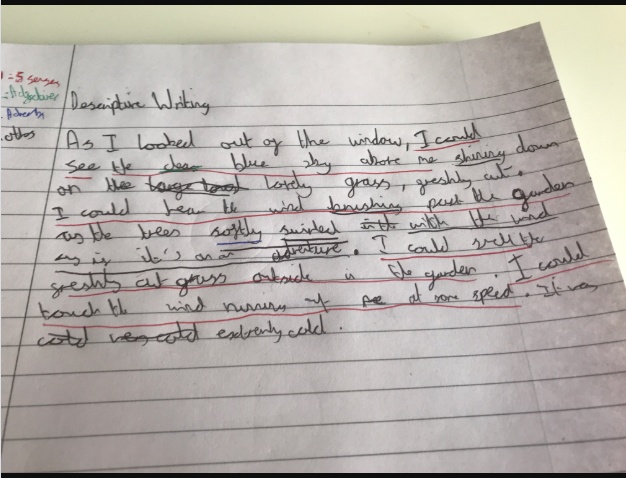 1 = 5 senses
Adverbs
others
Descriptive Writing
As I looked out of the window, I could
see the clear blue sky above me shining down
on the lovely grass, freshly cut.
I could hear the wind brushing past the garden
as the trees softly swirled with the wind
as if it's on an adventure. I could smell the
freshly cut grass outside in the garden. I could
touch the wind running if at some speed. It was
extremly cold.